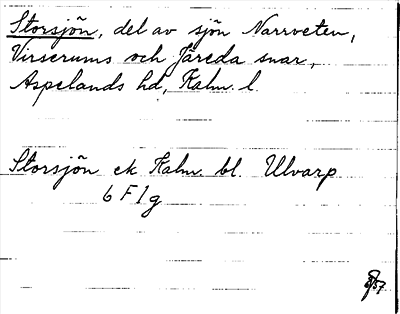 Storsjön, del av sjön Narrveten,
Virserums och Järeda snar,
Aspelands hd, Kalm. l.
Storsjön ek Kalm. bl. Ulvarp
6 F 1 g
57